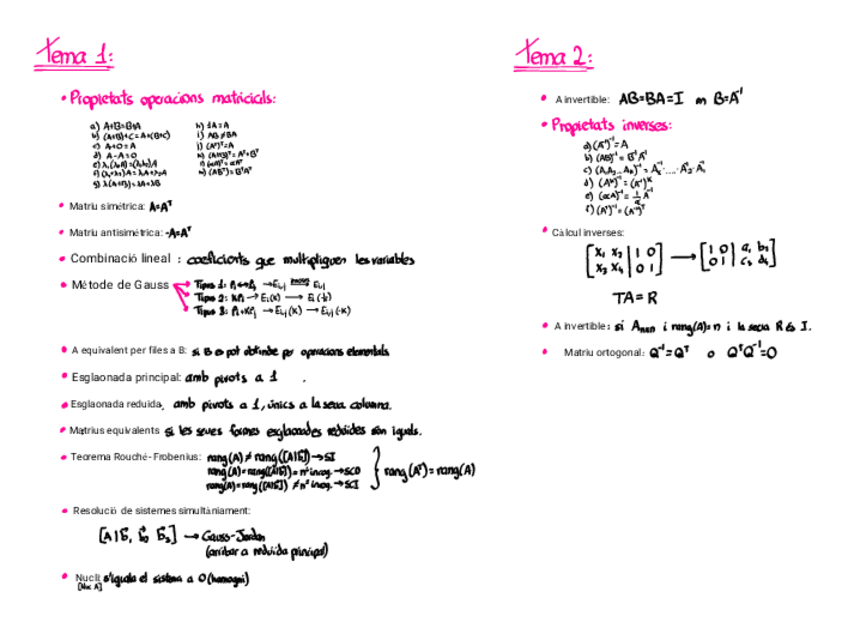 Tema 1:
• Propietats operacions matricials:
a) A+B=B+A
b) (A+B)+C=A+(B+C)
c) A+0=A
d) A-A=0
h) 1A=A
i) AB≠BA
j) (Aᵀ)ᵀ=A
k) (A+B)ᵀ=Aᵀ+Bᵀ
l) (αA)ᵀ=αAᵀ
g) λ(A+B)=λA+λB
m) (AB)ᵀ=BᵀAᵀ
• Matriu simétrica: A=Aᵀ
• Matriu antisimétrica: -A=Aᵀ
• Combinació lineal : coeficients que multipliquen les variables
• Métode de Gauss
Tipus 1:
Tipus 2:
Tipus 3:
• A equivalent per files a B: si B es pot obtindre per operacions elementals
• Esglaonada principal: amb pivots a 1 .
• Esglaonada reduida, amb pivots a 1, únics a la seua columna.
• Matrius equivalents si les seues formes esglaonades reduides són iguals.
• Teorema Rouché-Frobenius: rang(A) ≠ rang([A|b⃗])→SI
rang(A)=rang([A|b⃗])=nº incog.→SCD
rang(A)=rang([A|b⃗]) ≠nº incog.→SCI
rang(Aᵀ)=rang(A)
• Resolució de sistemes simultàniament:
→ Gauss-Jordan
(arribar a reduida principal)
• Nucli: s'iguala el sistema a 0 (homogni)
[Nuc A]
Tema 2:
• A invertible: AB=BA=I B=A⁻¹
• Propietats inverses:
a) (A⁻¹)⁻¹=A
b) (AB)⁻¹=B⁻¹A⁻¹
d) (Aᵏ)⁻¹=(A⁻¹)ᵏ
f) (Aᵀ)⁻¹=(A⁻¹)ᵀ
• Càlcul inverses:
TA=R
• A invertible: si Anxn i rang(A)=n i la seua R és I.
• Matriu ortogonal: Q⁻¹=Qᵀ o QᵀQ⁻¹=0